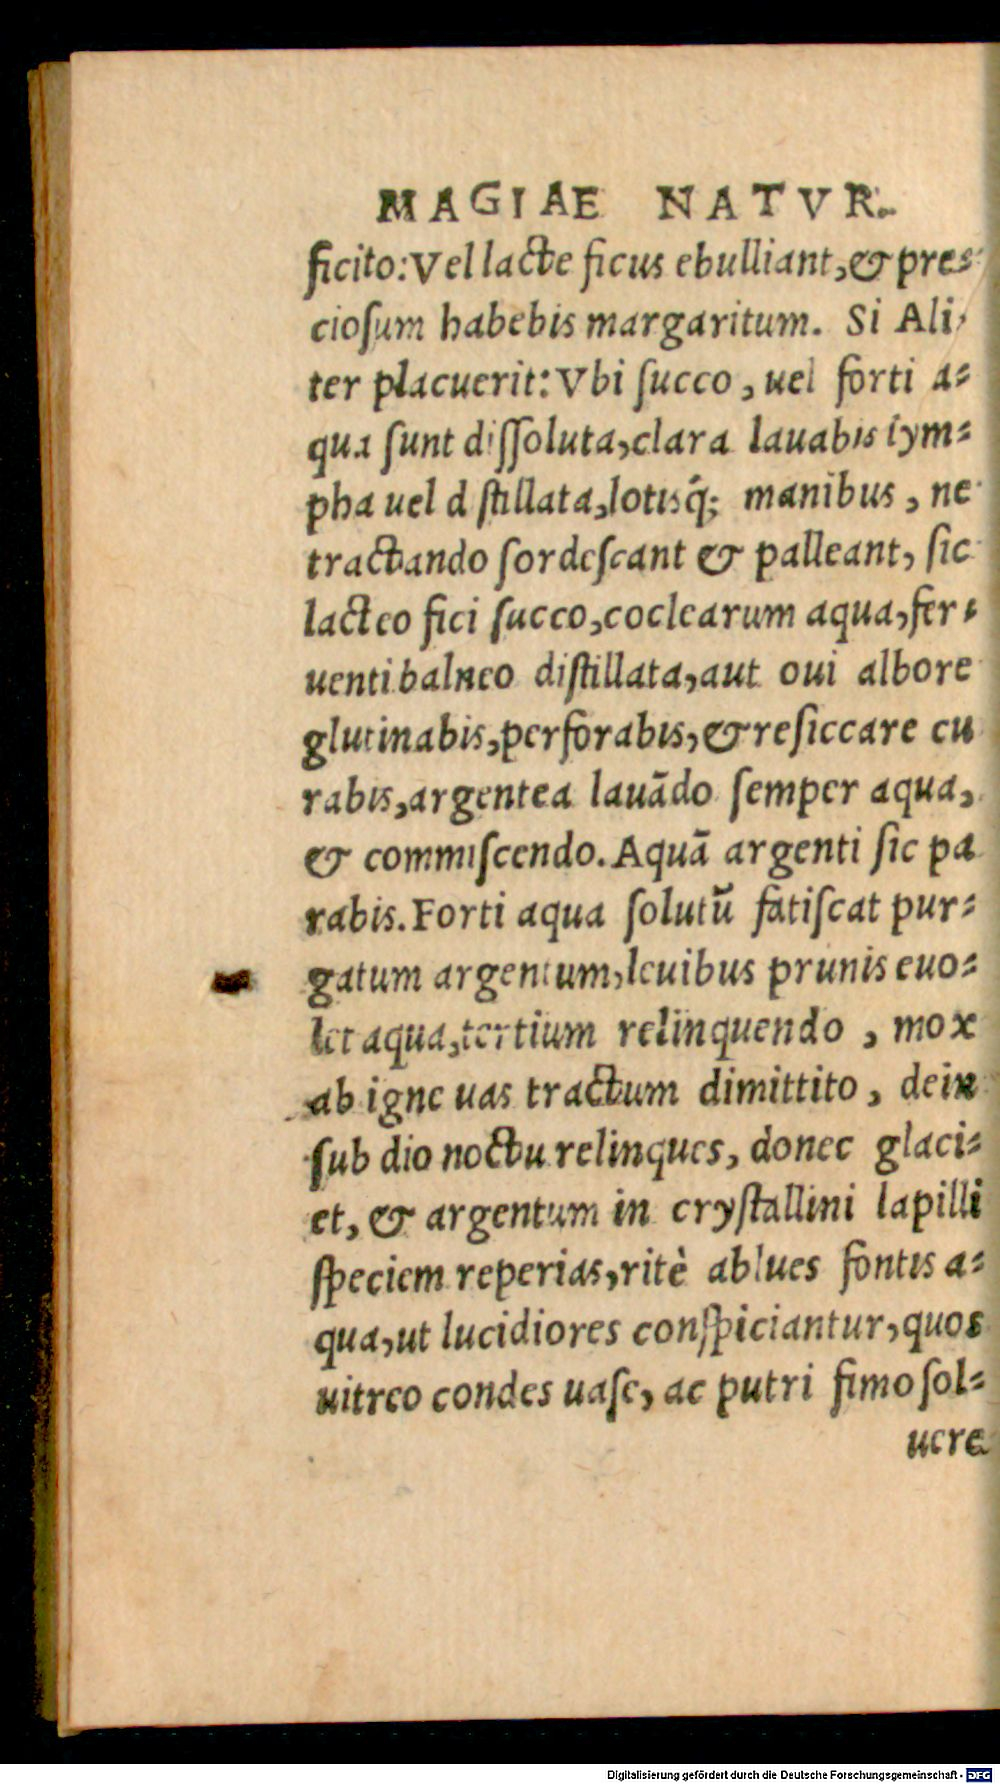 MAGIAE NATVR.
ficito: Vel lacte ficus ebulliant, & pre⸗
ciosum habebis margaritum. Si Ali⸗
ter placuerit: Vbi succo, uel forti a⸗
qua sunt dissoluta, clara lauabis lym⸗
pha uel distillata, lotisq́; manibus, ne
tractando sordescant & palleant, sic
lacteo fici succo, coclearum aqua, fer⸗
uenti balneo distillata, aut oui albore
glutinabis, perforabis, & resiccare cu
rabis, argentea lauādo semper aqua,
& commiscendo. Aquā argenti sic pa
rabis. Forti aqua solutū fatiscat pur⸗
gatum argentum, leuibus prunis euo⸗
let aqua, tertium relinquendo, mox
ab igne uas tractum dimittito, dein
sub dio noctu relinques, donec glaci⸗
et, & argentum in crystallini lapilli
speciem reperias, ritè ablues fontis a⸗
qua, ut lucidiores conspiciantur, quos
uitreo condes uase, ac putri fimo sol⸗
uere
Digitalisierung gefördert durch die Deutsche Forschungsgemeinschaft - DFG